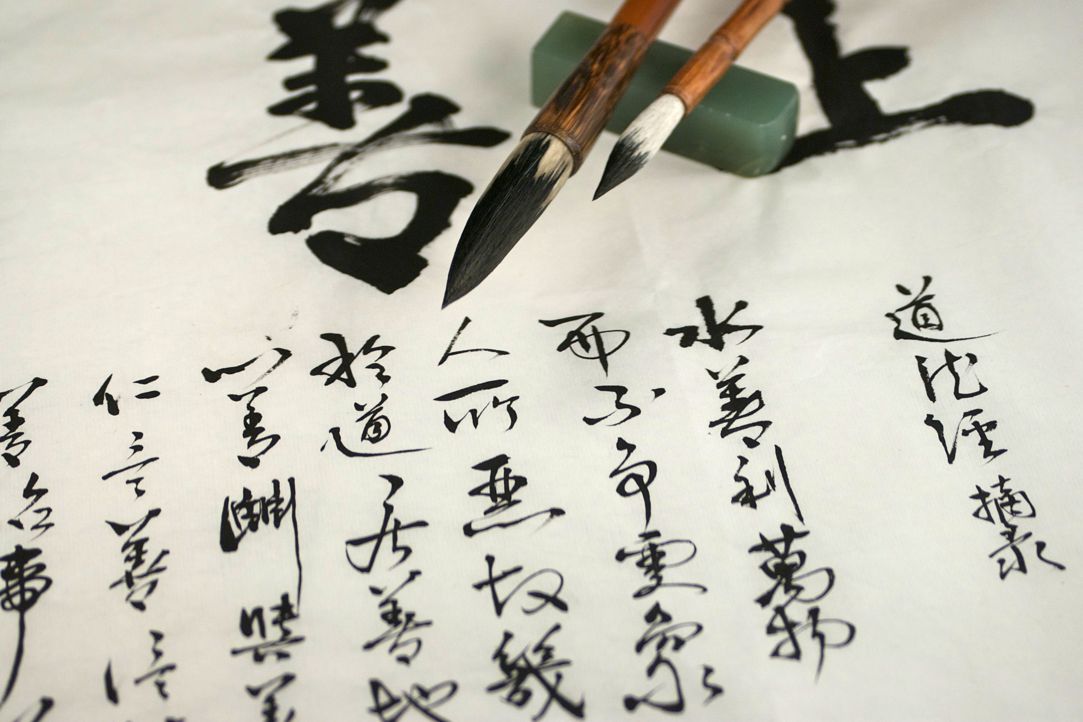 上善
道德經摘录
水善利萬物
而不争處衆
人所惡故幾
於道居善地
心善淵與善
仁言善信
善治事善